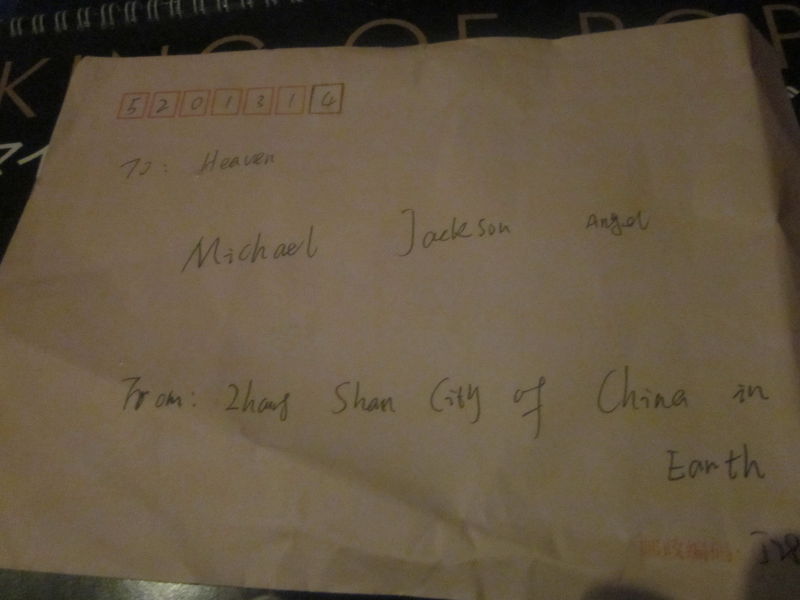 KING OF POP
5201314
To: Heaven
Michael Jackson Angel
From: Zhong Shan City of China in
Earth
邮政编码: 528